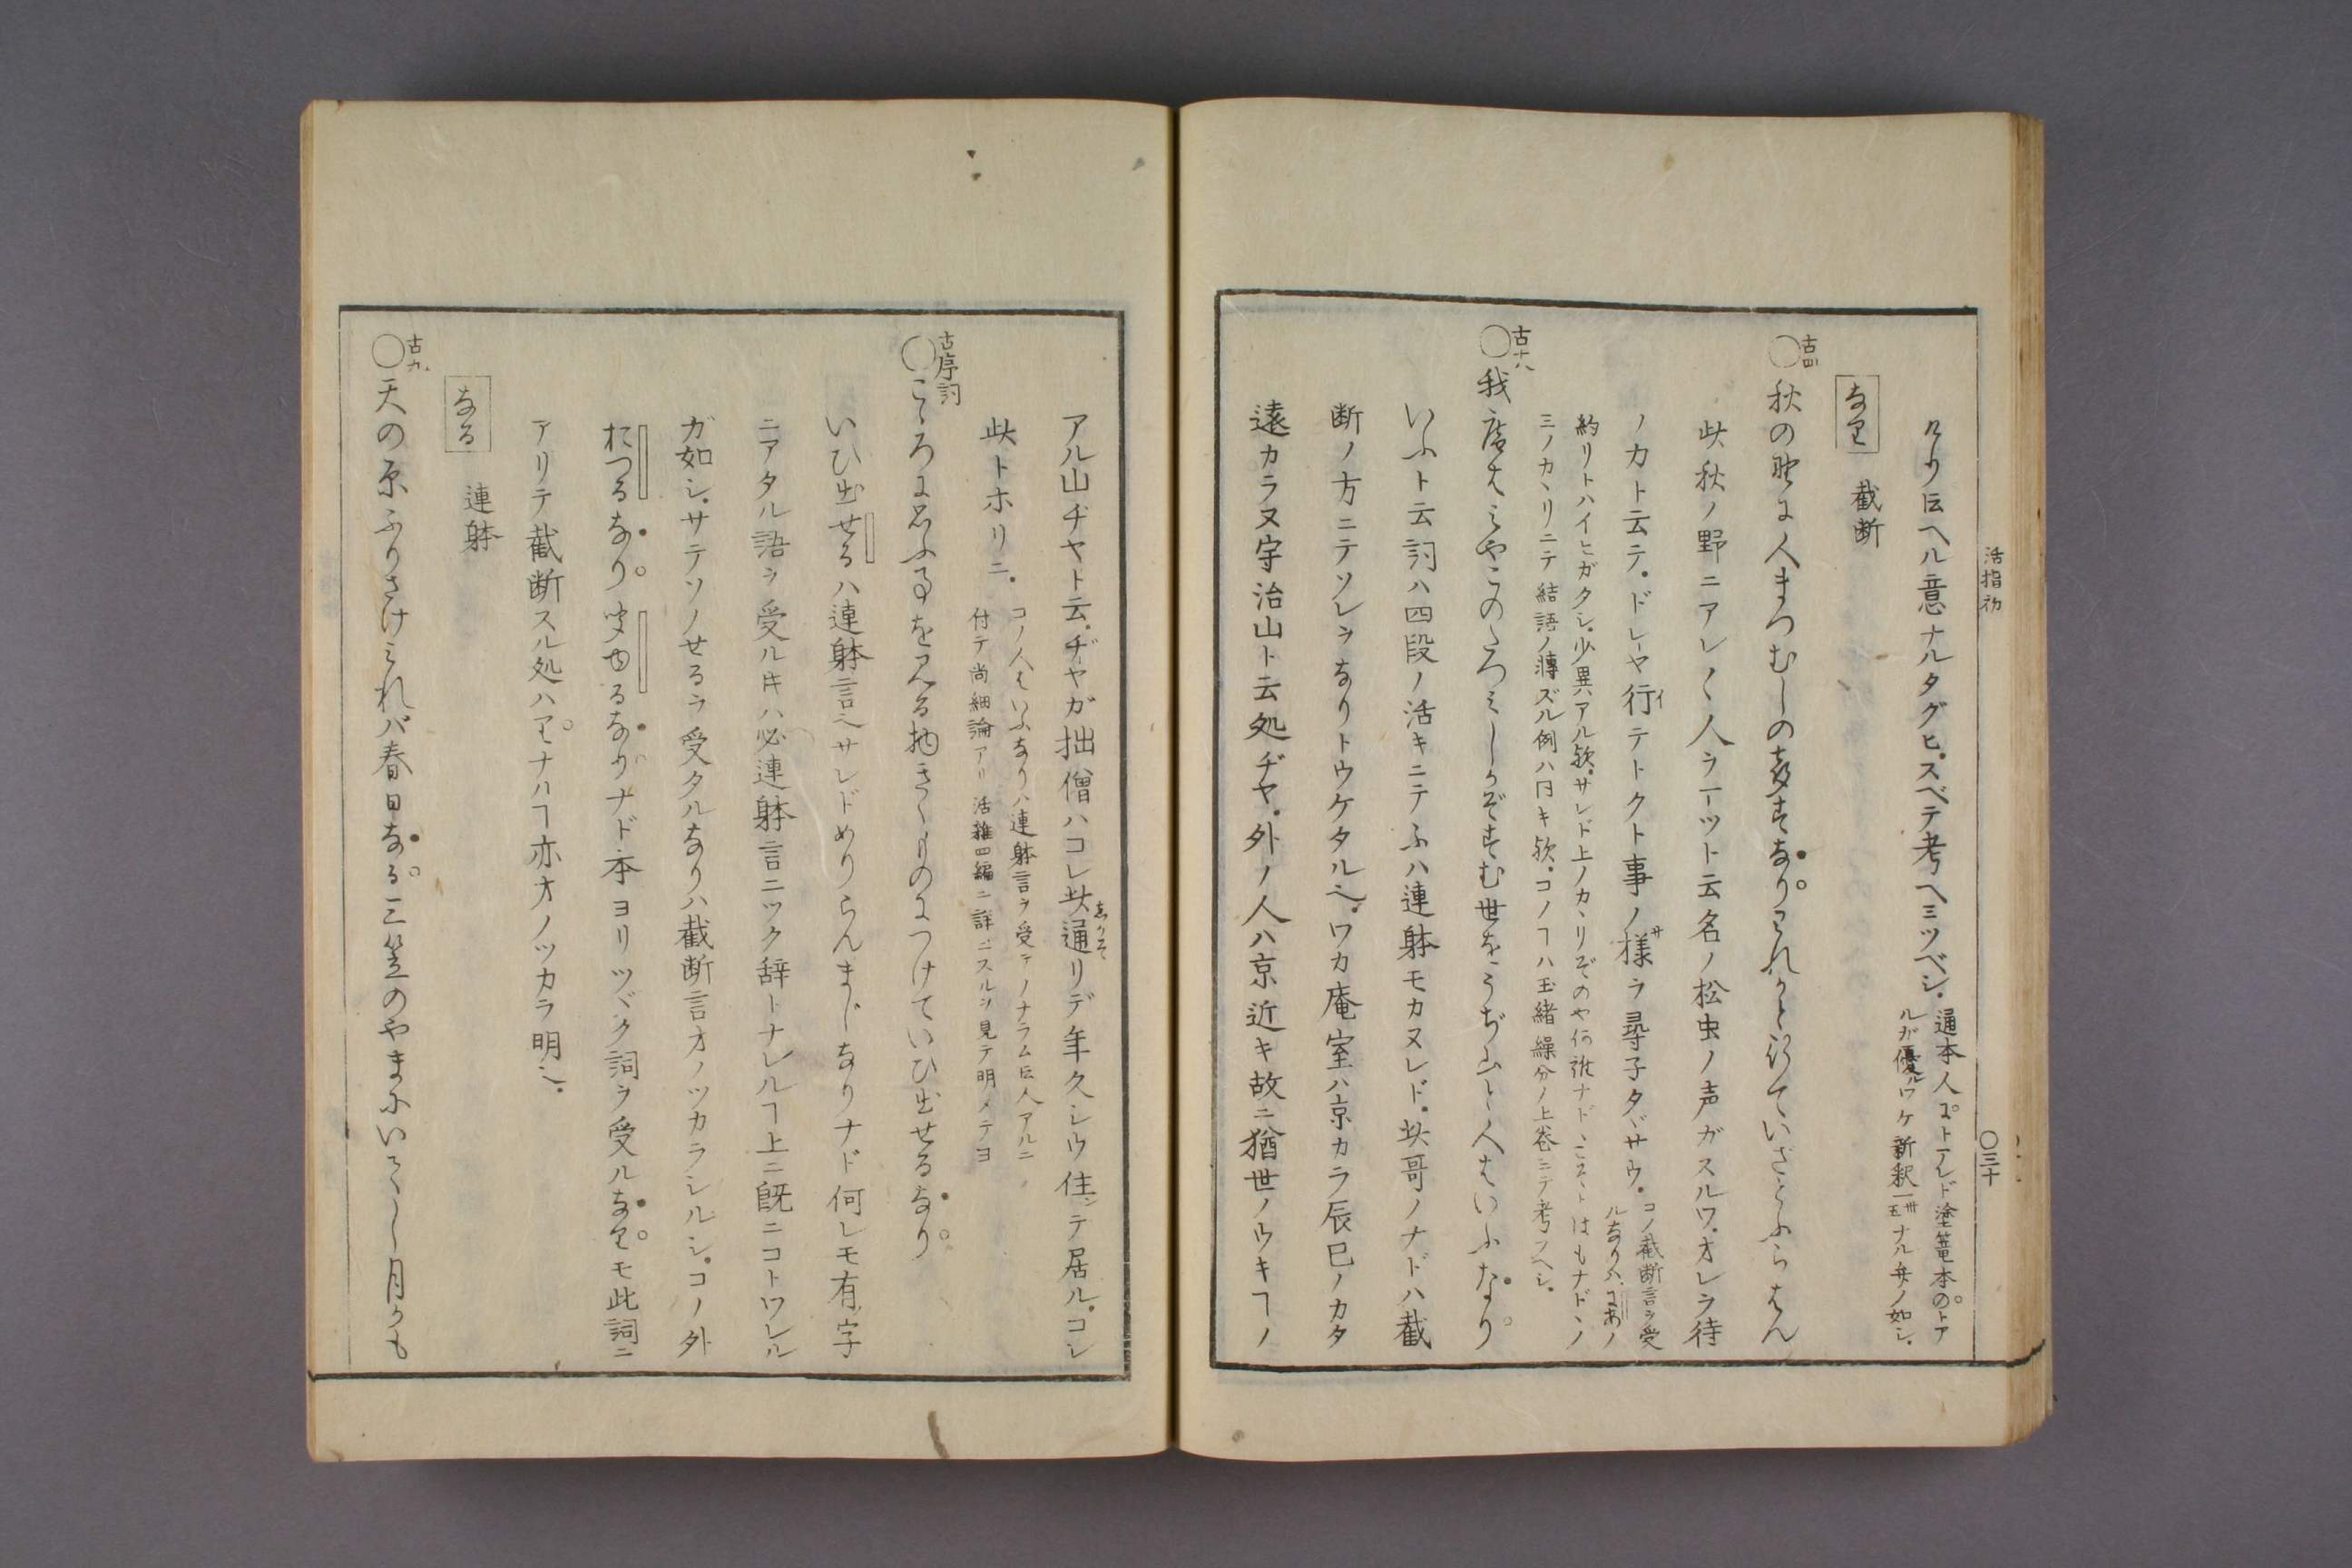 ケリ㠯ヘル意ナルタグヒ。スベテ考ヘミツベシ。
通本人ニトアレド塗篭本のトア
ルガ優ルワケ新釈
ナル弁ノ如シ。
活指初
〇三十
なり 截断
古四
〇秋の野に人まつむしの声すなりわれかと行ていざとふらはん
此秋ノ野ニアレ〱人ラ一ツト云名ノ松虫ノ声ガスルワ。オレヲ待
ノカト云テ。ドレヤ行テトクト事ノ様ヲ尋子タヾサウ。
コノ截断言ヲ受
ルなりハにあノ
約リトハイヒガタシ。少異ハアル欤。サレド上ノカヽリぞのや何誰ナドこそとはもナドノ
三ノカヽリニテ結語ノ轉ズル例ハ同キ欤。コノヿハ玉緒繰分ノ上巻ニテ考フヘシ。
古十八
〇我庵はみやこのたつみしかぞすむ世をうぢ山と人はいふなり
いふト云詞ハ四段ノ活キニテふハ連躰モカヌレド。此哥ノナドハ截
断ノ方ニテソレヲなりトウケタル也。ワカ庵室ハ京カラ辰巳ノカタ
遠カラヌ宇治山ト云処ヂヤ。外ノ人ハ京近キ故ニ猶世ノウキヿノ
アル山ヂヤト云。ヂヤガ拙僧ハコレ此通リデ年久シウ住テ居ル。コレ
此トホリニ。
コノ人はいふなりハ連躰言ヲ受テノナラム㠯人アルニ
付テ尚細論アリ 活雑四編ニ詳ニスルヲ見テ明メテヨ
古序詞
〇こゝろに思ふ事を見る物きくものにつけていひ出せるなり
いひ出せるハ連躰言也サレドめりらんまじなりナド何レモ有字
ニアタル語ヲ受ル𪜈ハ必連躰言ニツク辞トナレルヿ上ニ既ニコトワレル
ガ如シ。サテソノせるヲ受タルなりハ截断言オノツカラシルシ。コノ外
おつるなり。きゆるなりナド本ヨリツヾク詞ヲ受ルなりモ此詞ニ
アリテ截断スル処ハりナルヿ亦オノツカラ明也。
なる 連躰
古九
〇天の原ふりさけみれバ春日なる三笠のやまにいてし月かも